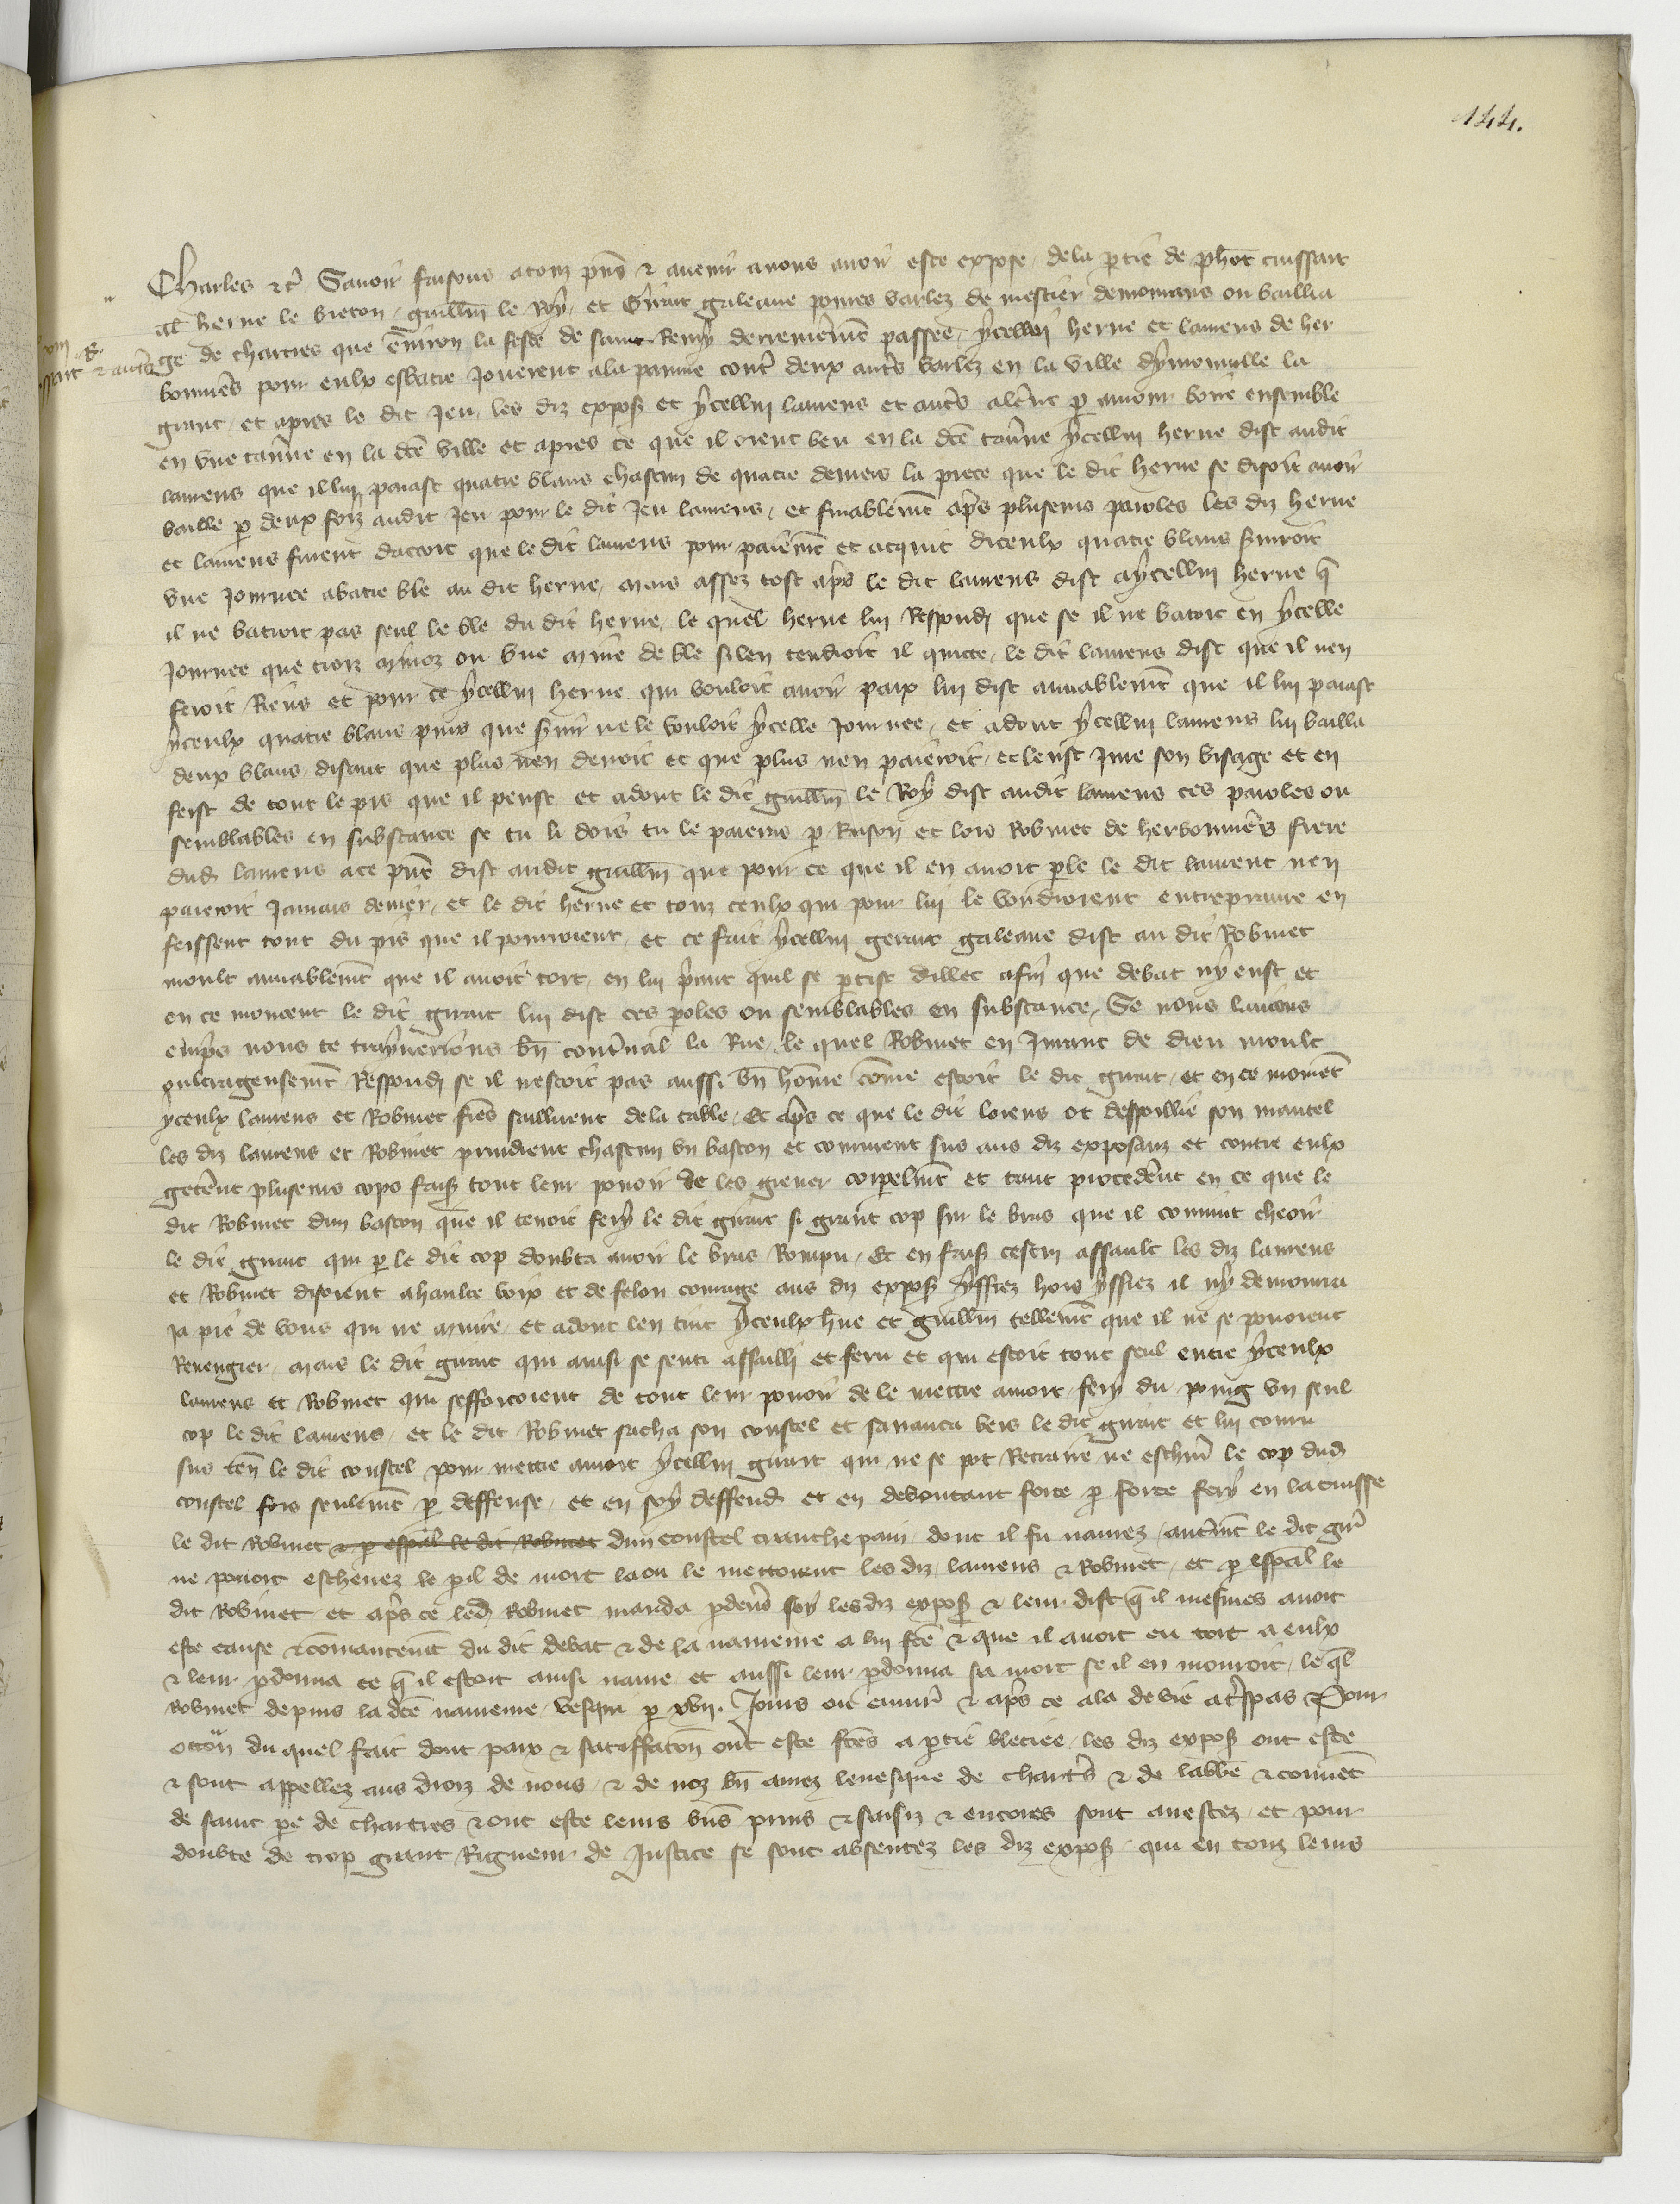 144.
Charles etc. Savoir faisons a touz pn̄s & avenir a nous avoir este expose dela ꝑtie de cuissart
al herve le breton guill̄m le Roy et Gīrart galerne povres varlez de mestier demorans ou baillia
ge de chartres que environ la feste de saint Remy derrenierem̄t passee ycellui herve et laurens de her
bonviēs pour eulx esbatre jouerent ala paume contr̄ deux autr̄s varlez en la ville dymonville la
grant et apres le dit Jeu les diz expoſ et ycellui laurens et autr̄s alēr̄t ꝑ amour boire ensemble
en une tav̄ne en la dcē ville et apres ce que il orent beu en la dcē tav̄ne ycellui herve dist audit
laurens que il lui paiast quatre blans chascun de quatre deniers la piece que le dit herve se disoit avoir
baille ꝑ deux foiz audit Jeu pour le dit Jeu laurens et finablem̄t apr̄s plusieurs paroles les diz herve
et laurens furent dacort que le dit laurens pour paiem̄t et acquit diceulx quatre blans s̄viroit
une journee abatre ble au dit herve mais assez tost apr̄s le dit laurens dist aycellui herve q̄
il ne batroit pas seul le ble du dit herve le quel herve lui Respondi que se il ne batoit en ycelle
journee que trois minoz ou une mine de ble si len tendroit il quitte le dit laurens dist que il nen
feroit Riens et pour ce ycellui herve qui vouloit avoir paix lui dist amiablem̄t que il lui paiast
yceulx quatre blans puis que s̄vir ne le vouloit ycelle journee et adont ycellui laurens lui bailla
deux blans disant que plus nen devoit et que plus nen paieroit et leust Jure son visage et en
feist de tout le pis que il peust et adont le dit guill̄m le Roy dist audit laurens ces paroles ou
semblables en substance se tu li dois tu le paieras ꝑ Raison et lors Robinet de herbonviēs frere
dud laurens ace pn̄t dist audit guill̄m que pour ce que il en avoit ꝑle le dit laurent nen
paieroit Jamais denier et le dit herve et touz ceulx qui pour lui le voudroient entreprenre en
feissent tout du pis que il pourroient et ce fait ycellui gerart galerne dist au dit Robinet
moult amiablem̄t que il avoit tort en lui pr̄ant quil se ꝑtist dillec afin que debat ny eust et
en ce moment le dit girart lui dist ces ꝑoles ou semblables en substance Se nous lavions
empr̄s nous te traynerions bn̄ contr̄val la Rue le quel Robinet en Jurant de dieu moult
oultrageusem̄t Respondi se il nestoit pas aussi bn̄ hom̄e com̄e estoit le dit girart et en ce momēt
yceulx laurens et Robinet frēs saillirent dela table Et apr̄s ce que le dit lorens ot despoillie son mantel
les diz laurens et Robinet prindrent chascun un baston et coururent sus aus diz exposanz et contre eulx
getēr̄t plusieurs cops faisſ tout leur povoir de les grever corꝑelm̄t et tant procedēr̄t en ce que le
dit Robinet dun baston que il tenoit fery le dit girart si grant cop sur le bras que il convint cheoir
le dit girart qui ꝑ le dit cop doubta avoir le bras Rompu Et en faisſ cestui assault les diz laurens
et Robinet disoient ahaulte voix et de felon courage aus diz expoſ yssiez hors yssiez il ny demourra
Ja pie de vous qui ne muire et adont len tint yceulx h̄ve et guill̄m tellem̄t que il ne se povoient
Revengier mais le dit girart qui ainsi se senti assailli et feru et qui estoit tout seul entre yceulx
laurens et Robinet qui sefforcoient de tout leur povoir de le mettre amort fery du poing un seul
cop le dit laurens et le dit Robinet sacha son coustel et savanca vers le dit girart et lui couru
sus ten̄ le dit coustel pour mettre amort ycellui girart qui ne se pot Retraire ne eschiv̄ le cop dud
coustel fors seulem̄t ꝑ deffense et en soy deffend et en deboutant force ꝑ force fery en la cuisse
le dit Robinet & ꝑ esp̄al le dit Robinet dun coustel tranche pain dont il fu navrez autrem̄t le dit gir̄
ne povoit eschever le ꝑil de mort la ou le mettoient les diz laurens & Robinet et ꝑ esp̄cal le
dit Robinet et apr̄s ce led Robinet manda ꝑdev̄s soy lesdiz expoſ & leur dist q̄ il mesmes avoit
este cause & com̄ancem̄t du dit debat & de la navreure a lui fcē & que il avoit eu tort a eulx
& leur ꝑdonna ce q̄ il estoit ainsi navre et aussi leur ꝑdonna sa mort se il en mouroit le q̄l
Robinet depuis la dcē navreure vesqui ꝑ xvii. Jours ou environ & apr̄s ce ala de vie atr̄spas Pour
occōn du quel fait dont paix & satisffacōn ont este fcēs a ꝑtie bleciee les diz expoſ ont este
& sont appellez aus droiz de nous & de noz bn̄ amez levesque de chartr̄s & de labbē & couvēt
de saint pe de chartres & ont este leurs bn̄s prins & saisiz & encores sont arrestez et pour
doubte de trop grant Rigueur de Justice se sont absentez les diz expoſ qui en touz leurs